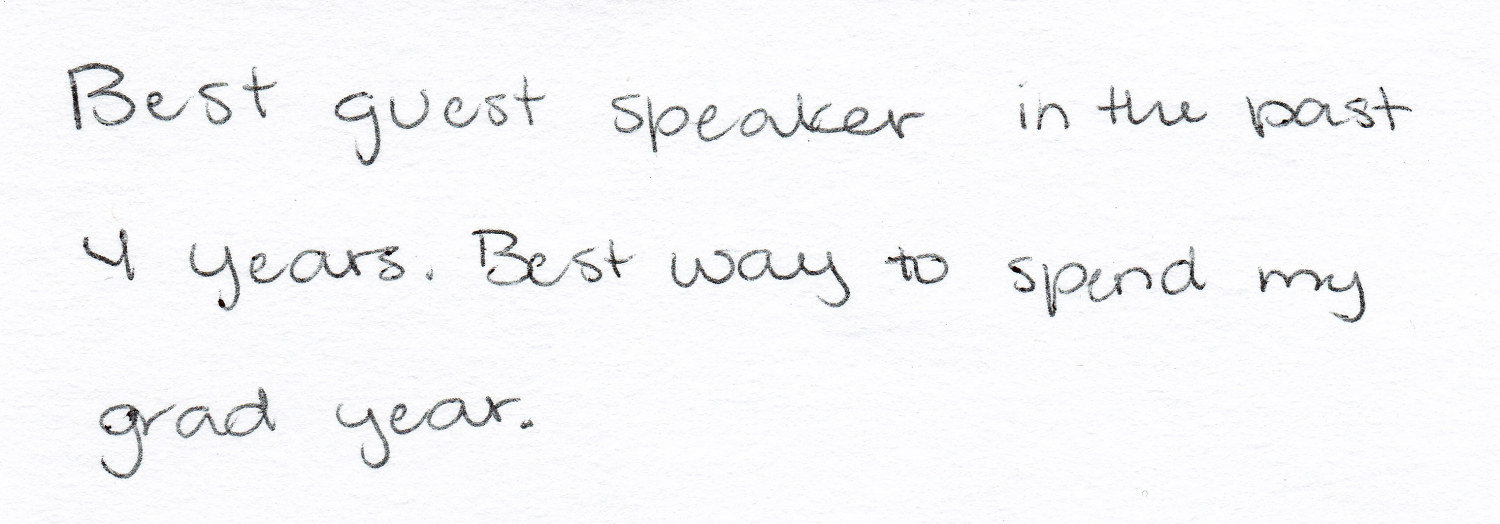 Best guest speaker in the past
4 years. Best way to spend my
grad year.